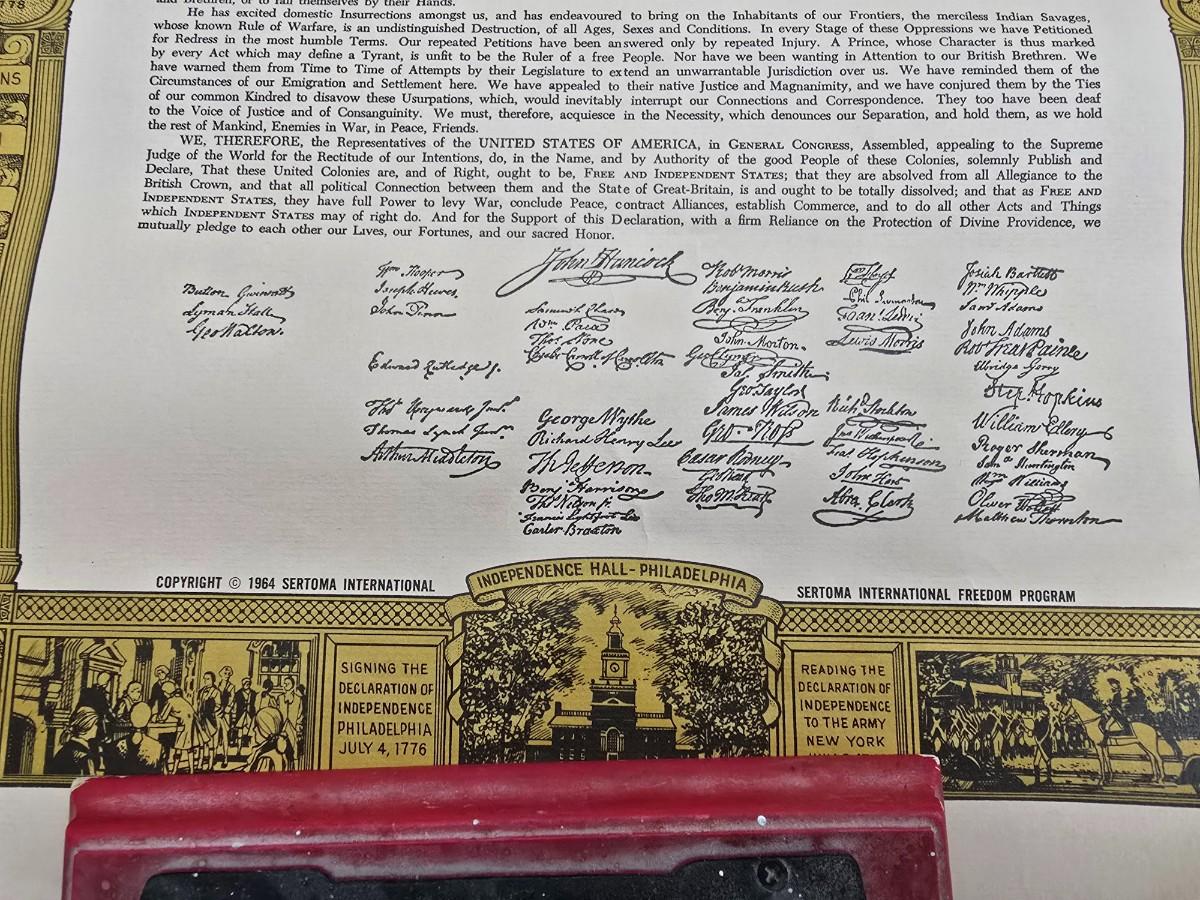 1778
and Brethren, or to fall themselves by their Hands.
He has excited domestic Insurrections amongst us, and has endeavoured to bring on the Inhabitants of our Frontiers, the merciless Indian Savages,
whose known Rule of Warfare, is an undistinguished Destruction, of all Ages, Sexes and Conditions. In every Stage of these Oppressions we have Petitioned
for Redress in the most humble Terms. Our repeated Petitions have been answered only by repeated Injury. A Prince, whose Character is thus marked
by every Act which may define a Tyrant, is unfit to be the Ruler of a free People. Nor have we been wanting in Attention to our British Brethren. We
have warned them from Time to Time of Attempts by their Legislature to extend an unwarrantable Jurisdiction over us. We have reminded them of the
Circumstances of our Emigration and Settlement here. We have appealed to their native Justice and Magnanimity, and we have conjured them by the Ties
of our common Kindred to disavow these Usurpations, which, would inevitably interrupt our Connections and Correspondence. They too have been deaf
to the Voice of Justice and of Consanguinity. We must, therefore, acquiesce in the Necessity, which denounces our Separation, and hold them, as we hold
the rest of Mankind, Enemies in War, in Peace, Friends.
WE, THEREFORE, the Representatives of the UNITED STATES OF AMERICA, in GENERAL CONGRESS, Assembled, appealing to the Supreme
Judge of the World for the Rectitude of our Intentions, do, in the Name, and by Authority of the good People of these Colonies, solemnly Publish and
Declare, That these United Colonies are, and of Right, ought to be, FREE AND INDEPENDENT STATES; that they are absolved from all Allegiance to the
British Crown, and that all political Connection between them and the State of Great-Britain, is and ought to be totally dissolved; and that as FREE AND
INDEPENDENT STATES, they have full Power to levy War, conclude Peace, contract Alliances, establish Commerce, and to do all other Acts and Things
which INDEPENDENT STATES may of right do. And for the Support of this Declaration, with a firm Reliance on the Protection of Divine Providence, we
mutually pledge to each other our Lives, our Fortunes, and our sacred Honor.
Button Gwinnett
Lyman Hall
Geo Walton.
Wm Hooper
Joseph Hewes,
John Penn
Edward Rutledge /.
Thos Heyward Junr.
Thomas Lynch Junr.
Arthur Middleton
John Hancock
Samuel Chase
Wm. Paca
Thos. Stone
Charles Carroll of Carrollton
George Wythe
Richard Henry Lee
Th Jefferson
Benj Harrison
Thos Nelson jr.
Francis Lightfoot Lee
Carter Braxton
Robt Morris
Benjamin Rush
Benj. Franklin
John Morton
Geo Clymer
Jas. Smith
Geo. Taylor
James Wilson
Geo. Ross
Caesar Rodney
Geo Read
Tho M:Kean
Phil. Livingston
Lewis Morris
Richd. Stockton
Jno Witherspoon
Fras. Hopkinson
John Hart
Abra Clark
Josiah Bartlett
Wm Whipple
Saml Adams
John Adams
Robt Treat Paine
Elbridge Gerry
Step. Hopkins
William Ellery
Roger Sherman
Saml Huntington
Wm Williams
Oliver Wolcott
Matthew Thornton
COPYRIGHT © 1964 SERTOMA INTERNATIONAL
INDEPENDENCE HALL-PHILADELPHIA
SERTOMA INTERNATIONAL FREEDOM PROGRAM
SIGNING THE
DECLARATION OF
INDEPENDENCE
PHILADELPHIA
JULY 4, 1776
READING THE
DECLARATION OF
INDEPENDENCE
TO THE ARMY
NEW YORK